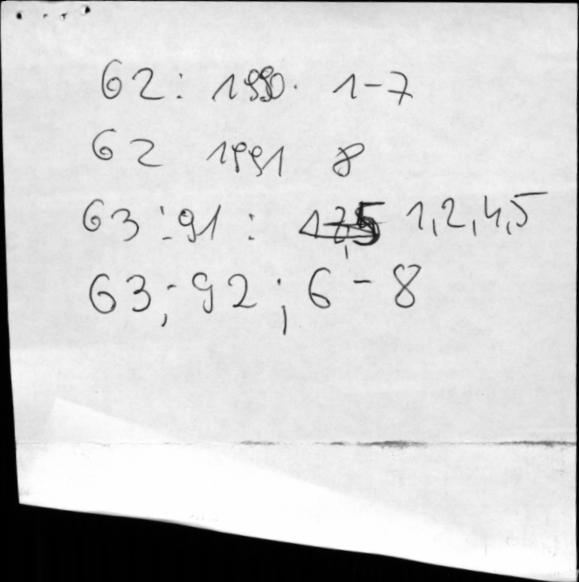 62: 1990. 1-7
62 1991 8
63:91: 1,2,4,5
63;-92; 6-8